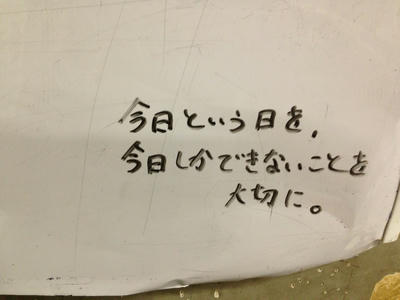 今日という日を,
今日しかできないことを
大切に。